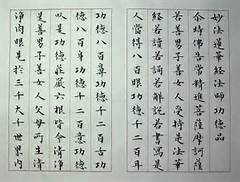 妙法蓮華經法師功德品
尒時佛告常精進菩薩摩訶薩
若善男子善女人受持是法華
經若讀若誦若解說若書寫是
人當得八百眼功德千二百耳
功德八百鼻功德千二百舌功
德八百身功德千二百意功德
以是功德莊嚴六根皆令清淨
是善男子善女人父母所生清
淨肉眼見於三千大千世界內